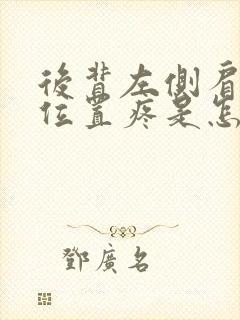 後背左側肩
位置疼是怎
鄧廣名